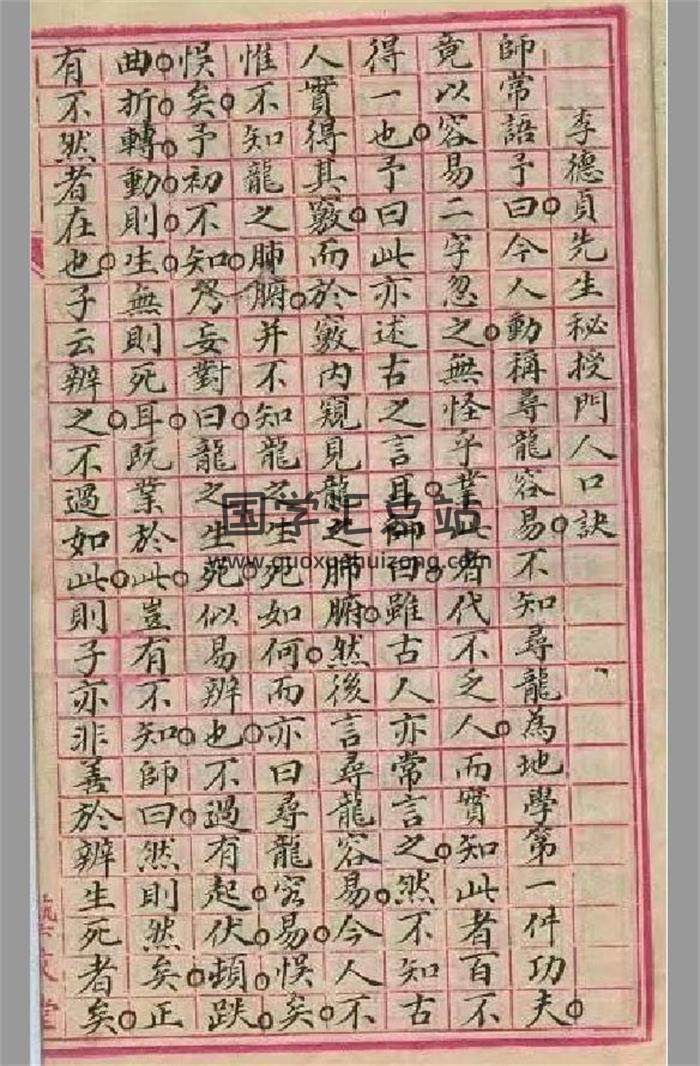 李德貞先生秘授門人口訣
師常語予曰。今人動稱尋龍容易。不知尋龍為地學第一件功夫。
竟以容易二字忽之。無怪乎業此者代不乏人。而實知此者百不
得一也。予曰此亦述古之言耳。師曰。雖古人亦常言之。然不知古
人實得其竅。而於竅內窺見龍之肺腑。然後言尋龍容易。今人不
惟不知龍之肺腑。并不知龍之生死如何。而亦曰尋龍容易。悞矣。
悞矣。予初不知。冐妄對曰。龍之生死。似易辨也。不過有起。伏。頓。跌。
曲。折。轉。動。則。生。無則死耳。既業於此。豈有不知。師曰。然則然矣。正
有不然者在也。子云辨之。不過如此。則子亦非善於辨生死者矣。
国学汇总站
www.guoxuehuizong.com